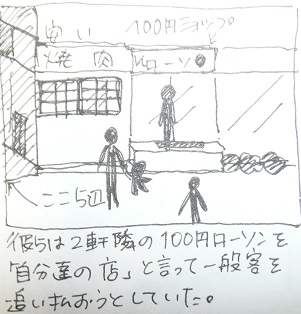 安い
100円ショップ
焼肉
ローソ
ここら辺
彼らは2軒隣の100円ローソンを
「自分達の店」と言って一般客を
追い払おうとしていた。